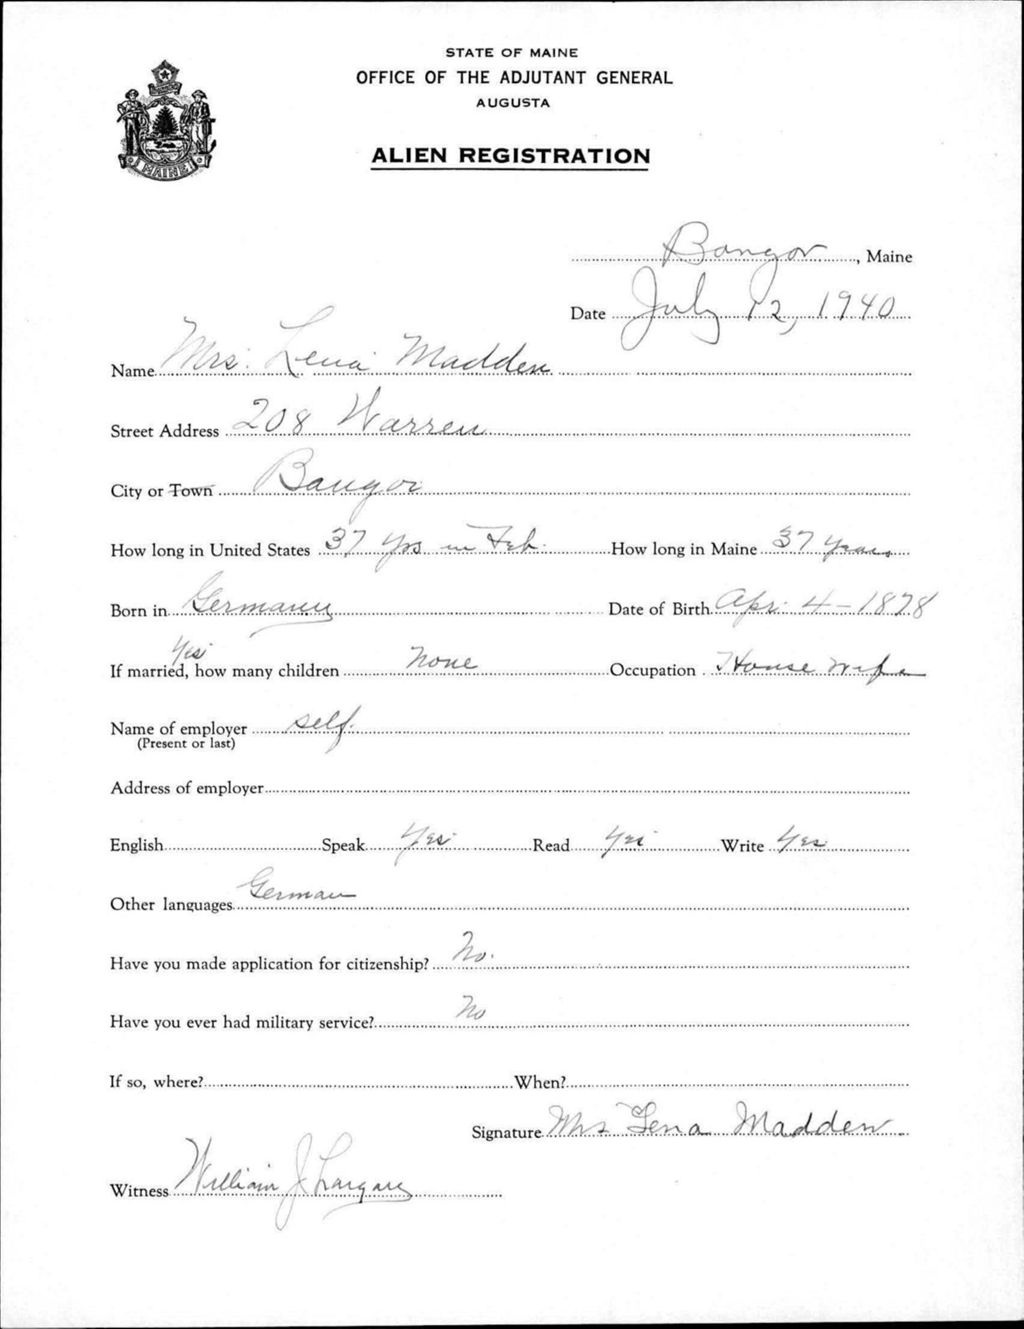 STATE OF MAINE
OFFICE OF THE ADJUTANT GENERAL
AUGUSTA
ALIEN REGISTRATION
MAINE
Bangor, Maine
Date July 12, 1940
Name Mrs. Lena Madden
Street Address 208 Warren
City or Town Bangor
How long in United States 37 yrs in Feb. How long in Maine 37 years
Born in Germany Date of Birth Apr. 4-1878
Yes
If married, how many children None Occupation House wife
Name of employer self.
(Present or last)
Address of employer
English Speak Yes Read Yes Write Yes
Other languages German
Have you made application for citizenship? No.
Have you ever had military service? No
If so, where? When?
Signature Mrs Lena Madden
Witness William J